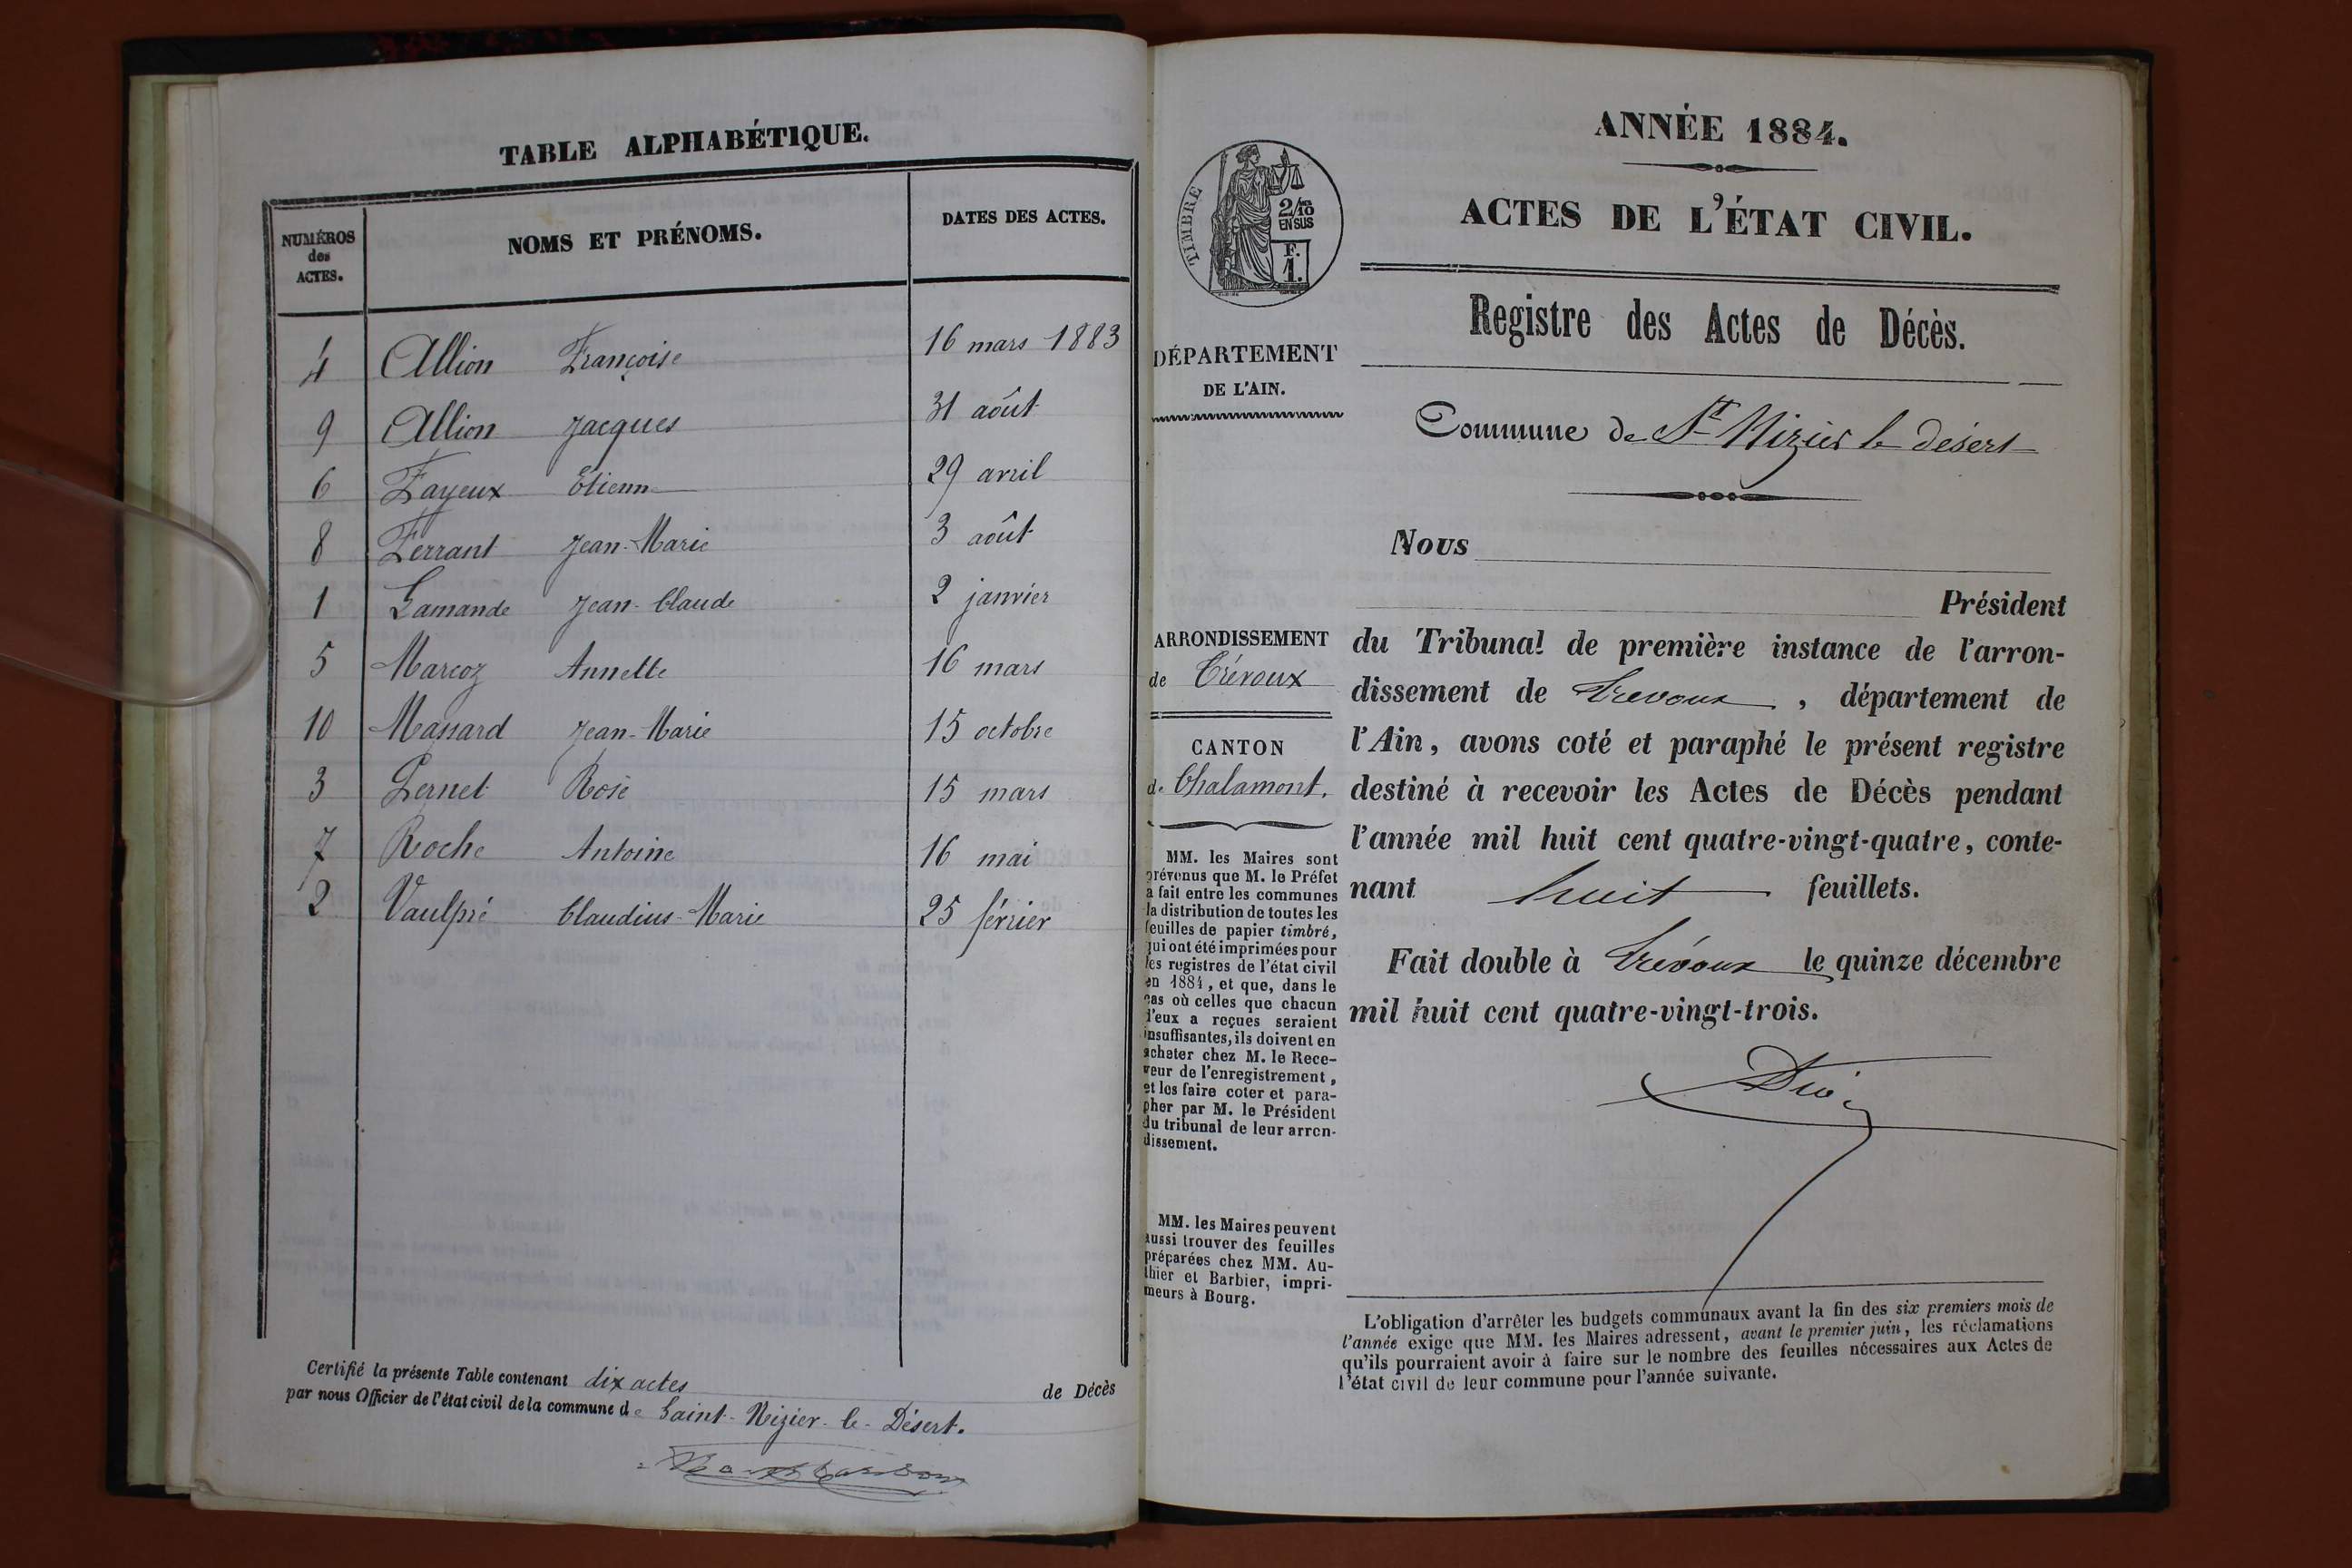 TABLE ALPHABÉTIQUE.
NUMÉROS
des
ACTES.
NOMS ET PRÉNOMS.
DATES DES ACTES.
4 Allion Françoise 16 mars 1883
9 Allion Jacques 31 août
6 Fayeux Etienne 29 avril
8 Ferrant Jean-Marie 3 août
1 Lamande Jean-Claude 2 janvier
5 Marcoz Annette 16 mars
10 Massard Jean-Marie 15 octobre
3 Pernet Rose 15 mars
7 Roche Antoine 16 mai
2 Vaulpré Claudius-Marie 25 février
Certifié la présente Table contenant dix actes de Décès
par nous Officier de l'état civil de la commune de Saint-Nizier-le-Désert.
TIMBRE
2/10
EN SUS
F.
1.
DÉPARTEMENT
DE L'AIN.
ARRONDISSEMENT
de Trévoux
CANTON
de Chalamont.
MM. les Maires sont
prévenus que M. le Préfet
a fait entre les communes
la distribution de toutes les
feuilles de papier timbré,
qui ont été imprimées pour
les registres de l'état civil
en 1884, et que, dans le
cas où celles que chacun
d'eux a reçues seraient
insuffisantes, ils doivent en
acheter chez M. le Rece-
veur de l'enregistrement,
et les faire coter et para-
pher par M. le Président
du tribunal de leur arron-
dissement.
MM. les Maires peuvent
aussi trouver des feuilles
préparées chez MM. Au-
thier et Barbier, impri-
meurs à Bourg.
ANNÉE 1884.
ACTES DE L'ÉTAT CIVIL.
Registre des Actes de Décès.
Commune de St Nizier le désert
Nous
Président
du Tribunal de première instance de l'arron-
dissement de Trevoux, département de
l'Ain, avons coté et paraphé le présent registre
destiné à recevoir les Actes de Décès pendant
l'année mil huit cent quatre-vingt-quatre, conte-
nant huit feuillets.
Fait double à Trévoux le quinze décembre
mil huit cent quatre-vingt-trois.
L'obligation d'arrêter les budgets communaux avant la fin des six premiers mois de
l'année exige que MM. les Maires adressent, avant le premier juin, les réclamations
qu'ils pourraient avoir à faire sur le nombre des feuilles nécessaires aux Actes de
l'état civil de leur commune pour l'année suivante.